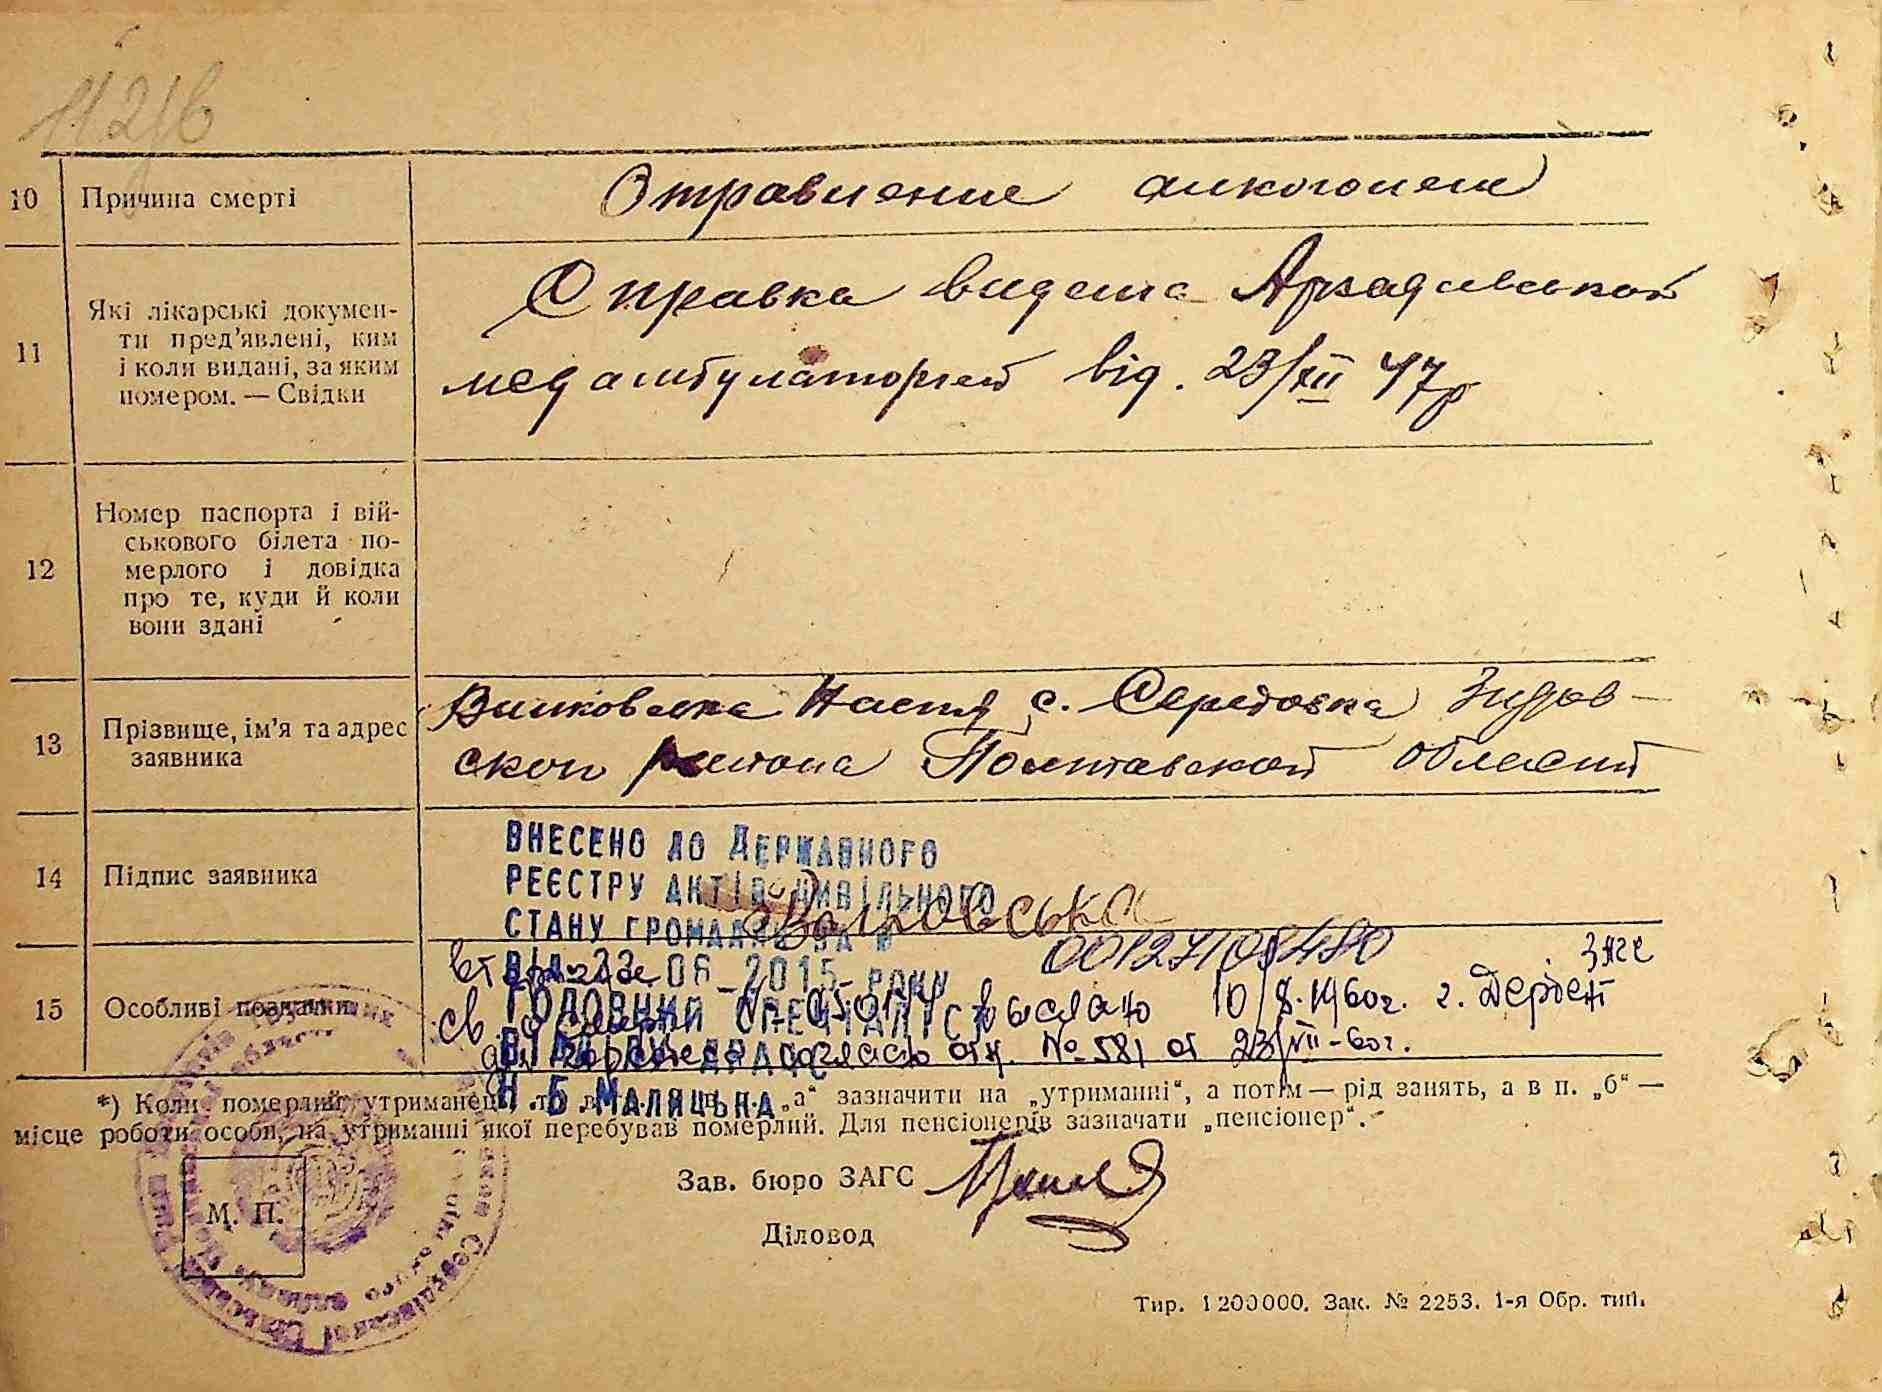 112/в
10 Причина смерті Отравление алкоголем
11 Які лікарські докумен-
ти пред'явлені, ким
і коли видані, за яким
номером. — Свідки
Справка видана Аркадиевской
мед амбулаторией від. 23/XII 47р
12 Номер паспорта і вій-
ськового білета по-
мерлого і довідка
про те, куди й коли
вони здані
13 Прізвище, ім'я та адрес
заявника
Настя с. Середовка
ской района Полтавской области
14 Підпис заявника
ВНЕСЕНО ДО ДЕРЖАВНОГО
РЕЄСТРУ АКТІВ ЦИВІЛЬНОГО
СТАНУ ГРОМАДЯН ЗА №
00127108480
ВІД 23. 06 2015 РОКУ
ГОЛОВНИЙ СПЕЦІАЛІСТ
ВІДДІЛУ ДРАЦС
Н.Б.МАЛЯЦЬКА
15 Особливі позначки
св о смерти выслано 10/8.1960г. г. Дербент
согласно № 581 от 23/VII-60г.
*) Коли померлий утриманець, то в „а“ зазначити на „утриманні“, а потім — рід занять, а в п. „б“ —
місце роботи особи, на утриманні якої перебував померлий. Для пенсіонерів зазначати „пенсіонер“.
Зав. бюро ЗАГС
М. П.
Діловод
Тир. 1200000. Зак. № 2253. 1-я Обр. тип.